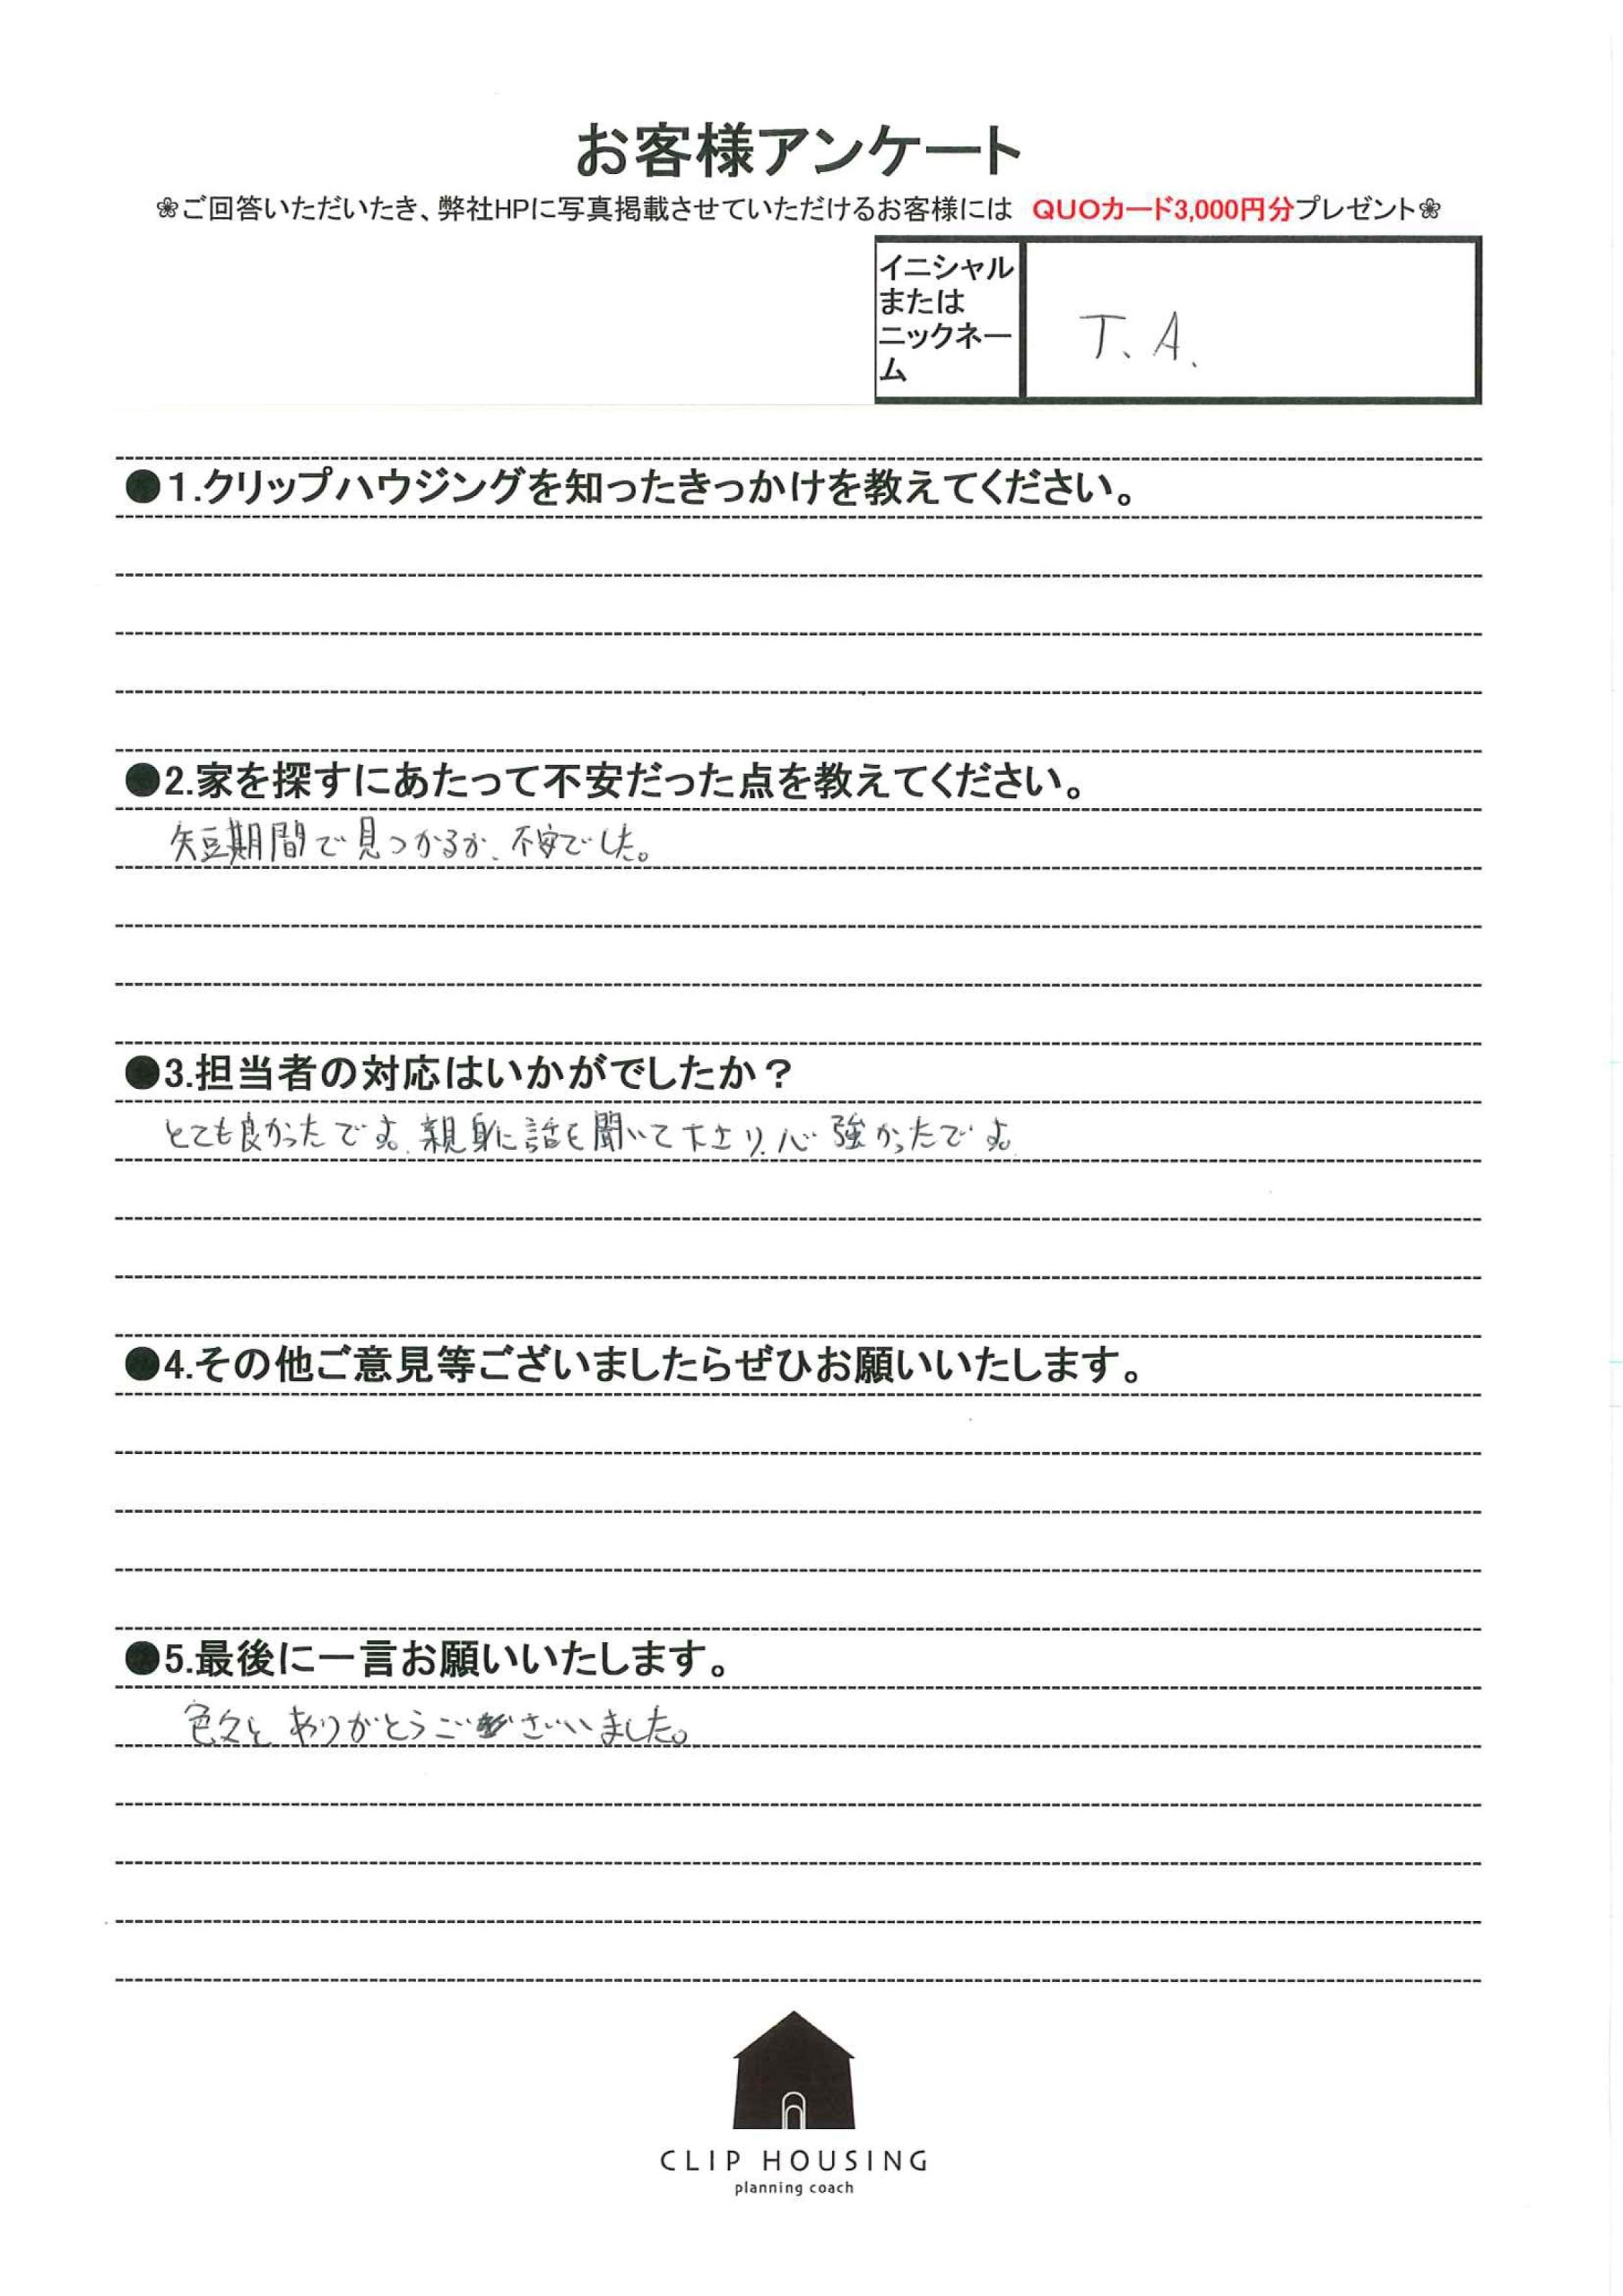 お客様アンケート
❀ご回答いただいたき、弊社HPに写真掲載させていただけるお客様には QUOカード3,000円分プレゼント❀
イニシャル
または
ニックネー
ム
T.A.
●1.クリップハウジングを知ったきっかけを教えてください。
●2.家を探すにあたって不安だった点を教えてください。
短期間で見つかるか、不安でした。
●3.担当者の対応はいかがでしたか？
とても良かったです。親身に話を聞いて下さり、心強かったです。
●4.その他ご意見等ございましたらぜひお願いいたします。
●5.最後に一言お願いいたします。
色々とありがとうございました。
CLIP HOUSING
planning coach